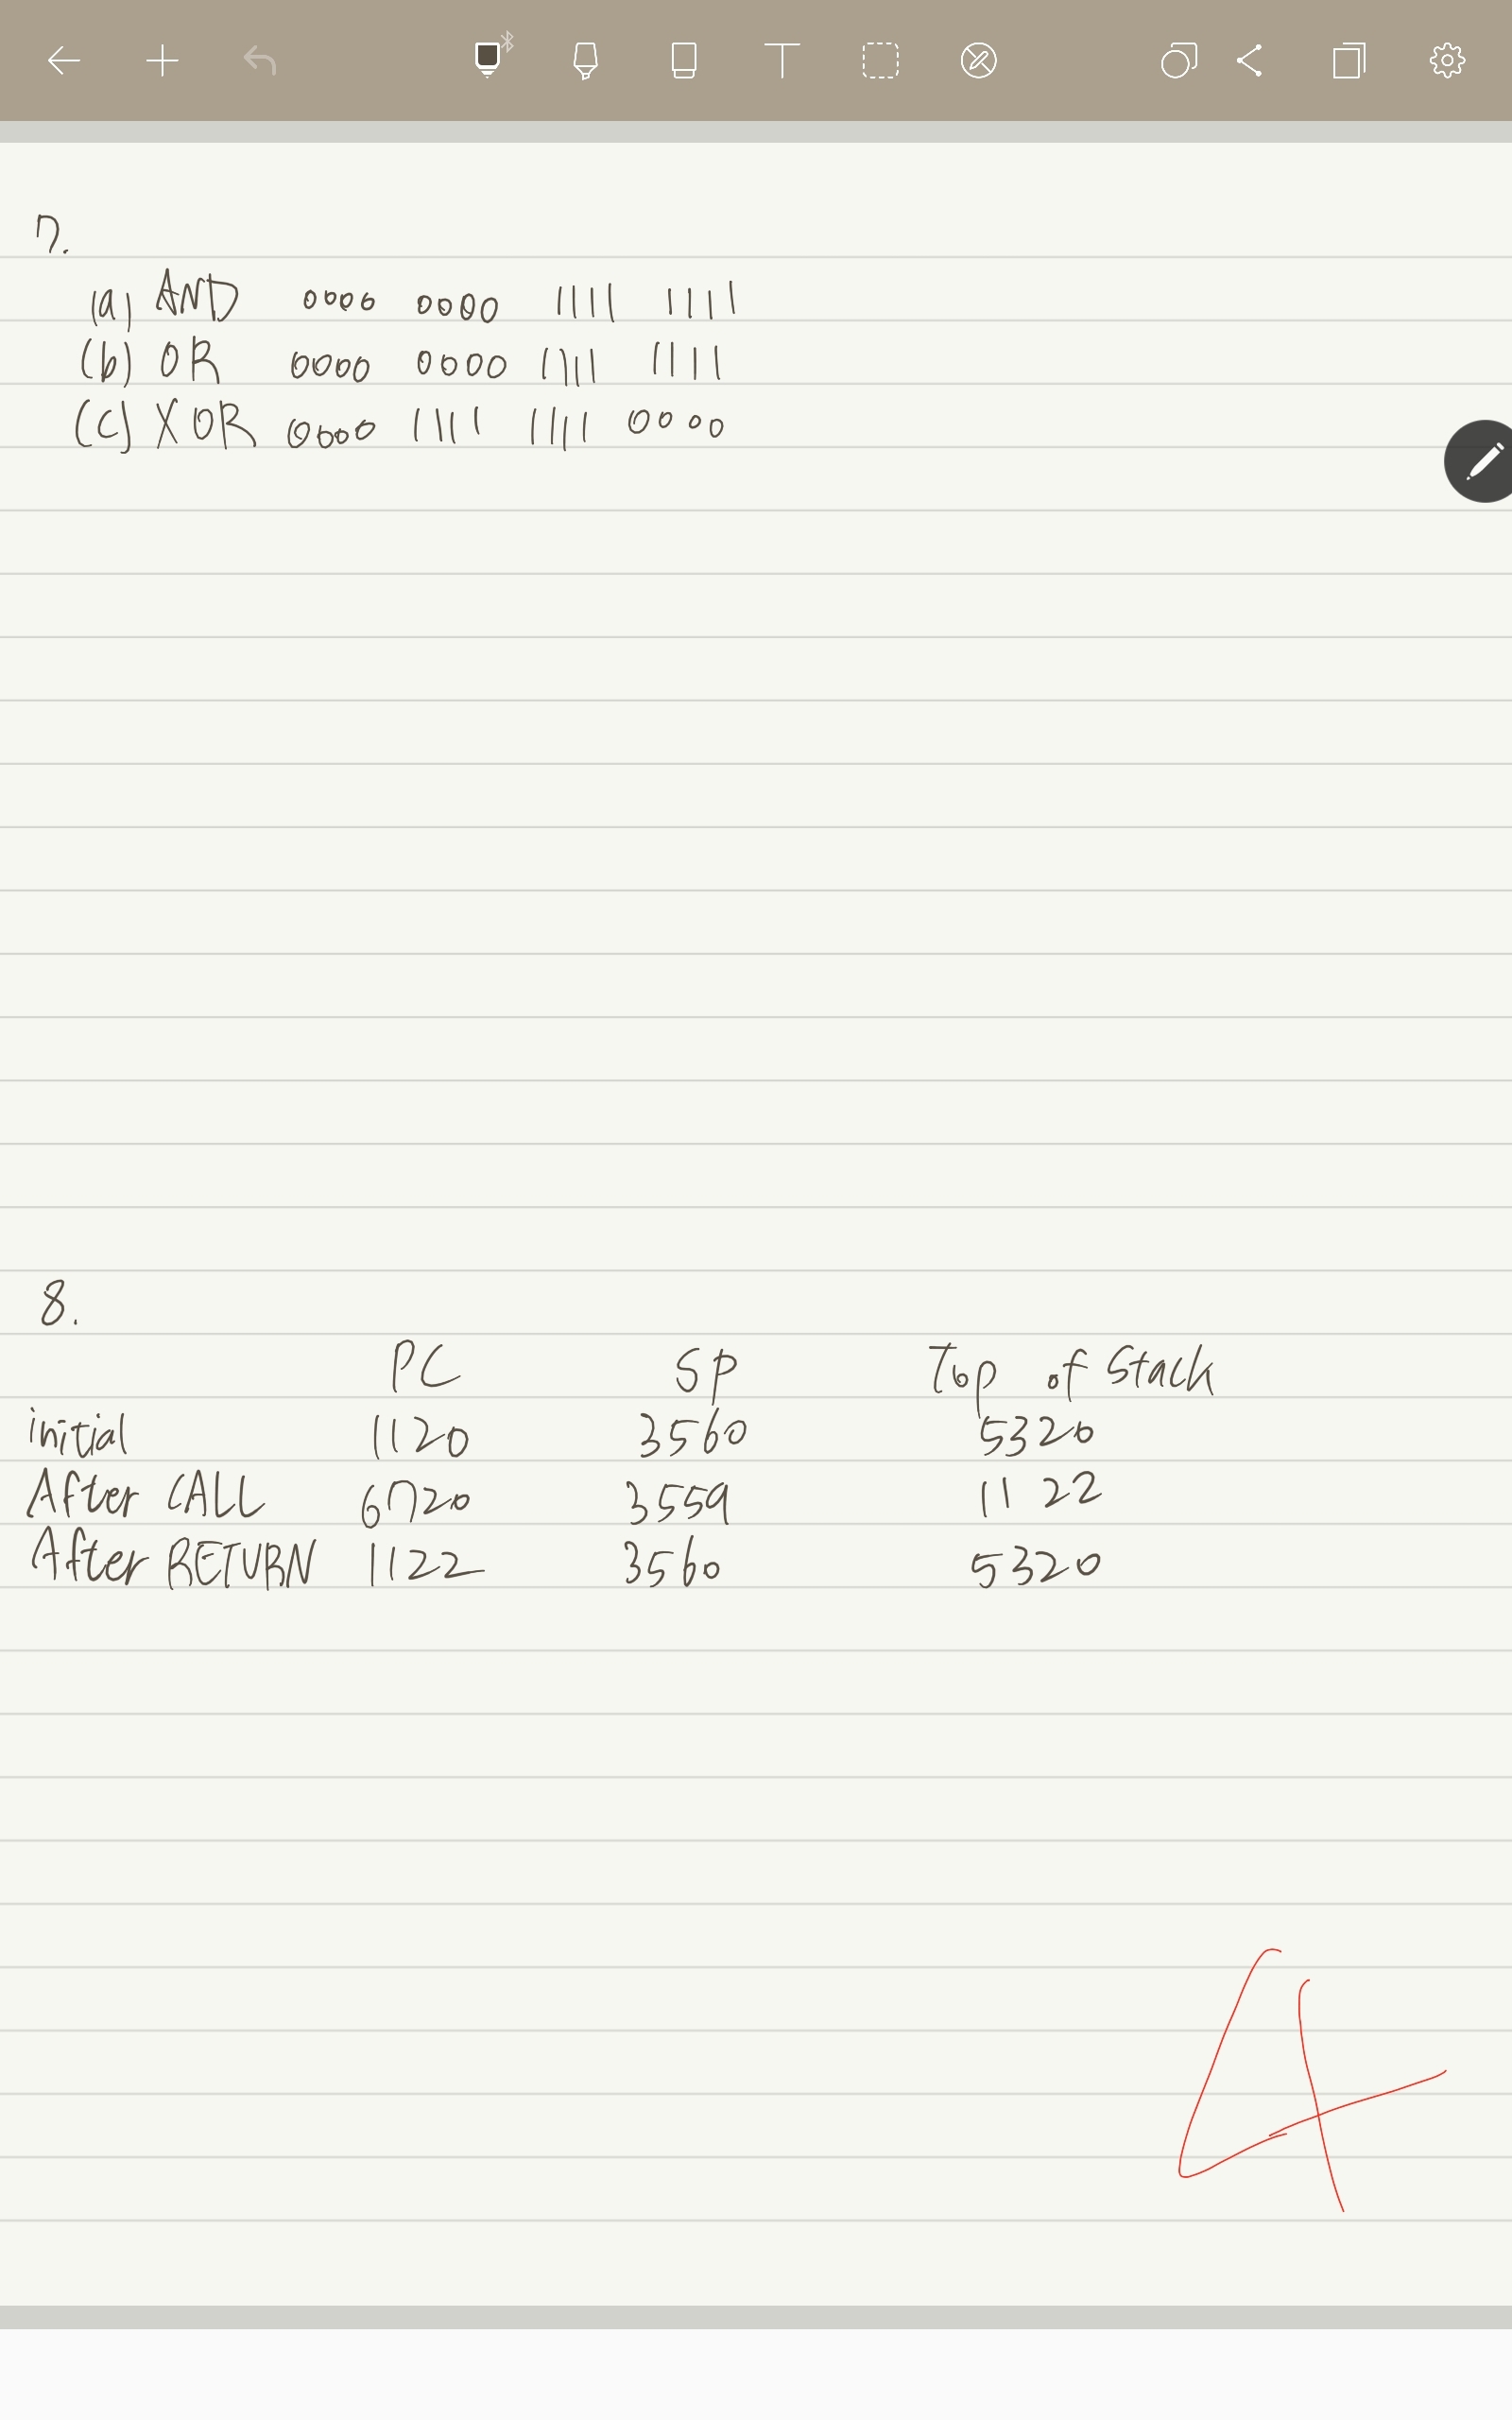 7.
(a) AND 0000 0000 1111 1111
(b) OR 0000 0000 1111 1111
(c) XOR 0000 1111 1111 0000
8.
PC SP Top of Stack
initial 1120 3560 5320
After CALL 6720 3559 1122
After RETURN 1122 3560 5320
4